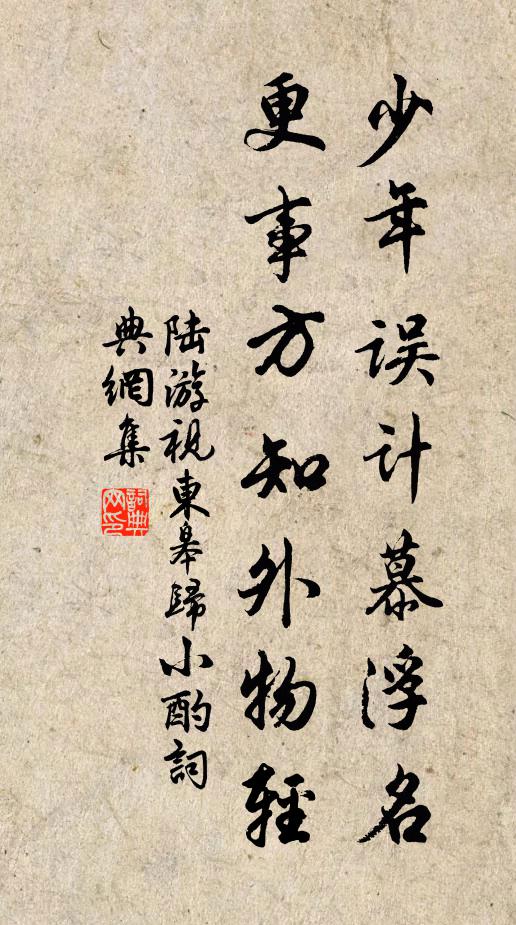 少年误计慕浮名
更事方知外物輕
陆游視東皋歸小酌詞
典網集
詞典网印